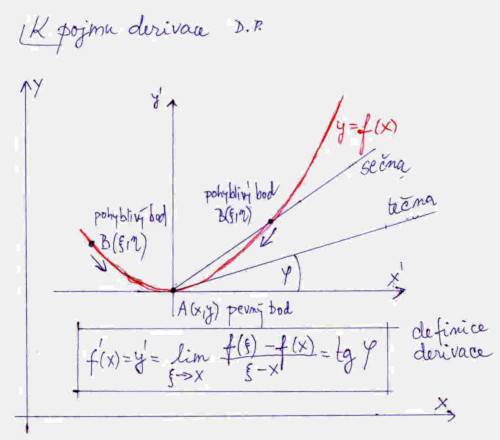 K pojmu derivace D.P.
y
y'
y=f(x)
sečna
pohyblivý bod
B(ξ,η)
tečna
pohyblivý bod
B(ξ,η)
φ
x'
A(x,y) pevný bod
f'(x)=y'=lim ξ→x f(ξ)-f(x)/ξ-x = tg φ
definice
derivace
x